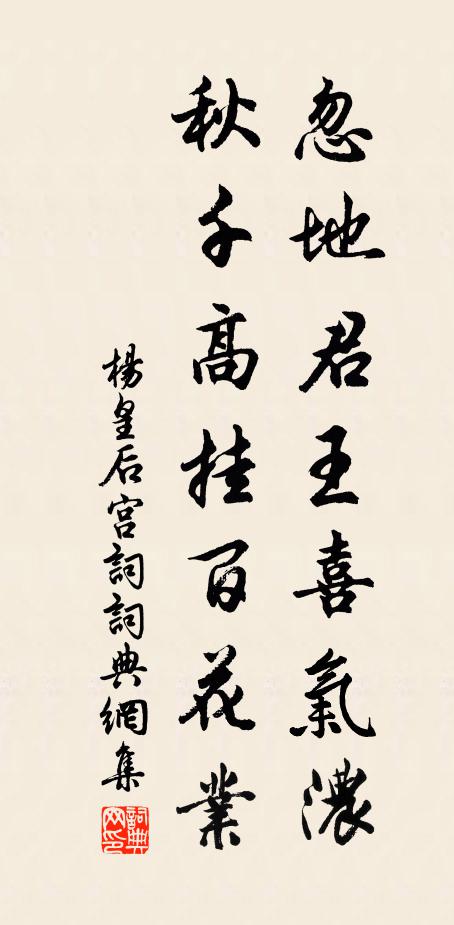 忽地君王喜氣濃
秋千高挂百花業
楊皇后宮詞詞典網集
詞典
网印